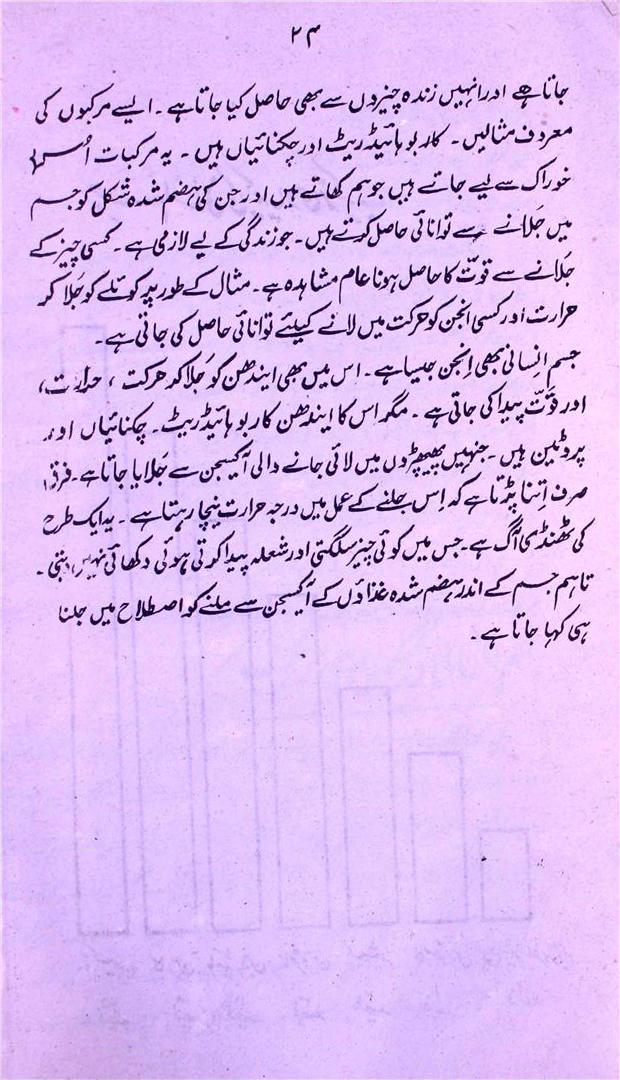 ۲۴
جاتا ہے اور انہیں زندہ چیزوں سے بھی حاصل کیا جاتا ہے ۔ ایسے مرکبوں کی
معروف مثالیں ۔ کاربوہائیڈریٹ اور چکنائیاں ہیں ۔ یہ مرکبات اُس
خوراک سے لیے جاتے ہیں جو ہم کھاتے ہیں اور جن کی ہضم شدہ شکل کو جسم
میں جَلانے سے توانائی حاصل کرتے ہیں ۔ جو زندگی کے لیے لازمی ہے ۔ کسی چیز کے
جَلانے سے قوّت کا حاصل ہونا عام مشاہدہ ہے ۔ مثال کے طور پر کوئلے کو جَلا کر
حرارت اور کسی انجن کو حرکت میں لانے کیلئے توانائی حاصل کی جاتی ہے ۔
جسمِ انسانی بھی اِنجن جیسا ہے ۔ اس میں بھی ایندھن کو جَلا کر حرکت ، حرارت ،
اور قوّت پیدا کی جاتی ہے ۔ مگر اس کا ایندھن کاربوہائیڈریٹ ۔ چکنائیاں اور
پروٹین ہیں ۔ جنہیں پھیپھڑوں میں لائی جانے والی آکسیجن سے جَلایا جاتا ہے ۔ فرق
صرف اِتنا پڑتا ہے کہ اِس جلنے کے عمل میں درجہ حرارت نیچا رہتا ہے ۔ یہ ایک طرح
کی ٹھنڈی آگ ہے ۔ جس میں کوئی چیز سلگتی اور شعلہ پیدا کرتی ہوئی دکھائی نہیں دیتی ۔
تاہم جسم کے اندر ہضم شدہ غذاؤں کے آکسیجن سے ملنے کو اصطلاح میں جلنا
ہی کہا جاتا ہے ۔